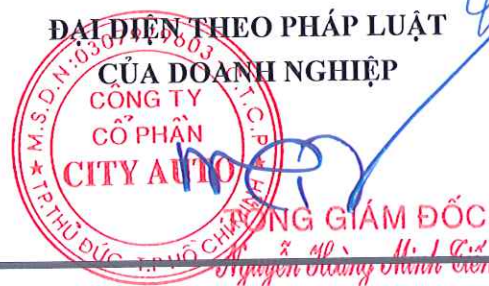 ĐẠI DIỆN THEO PHÁP LUẬT
CỦA DOANH NGHIỆP
CÔNG TY
CỔ PHẦN
CITY AUTO
TP.THỦ ĐỨC - T.P HỒ CHÍ MINH
TỔNG GIÁM ĐỐC
Nguyễn Hoàng Minh Tiến